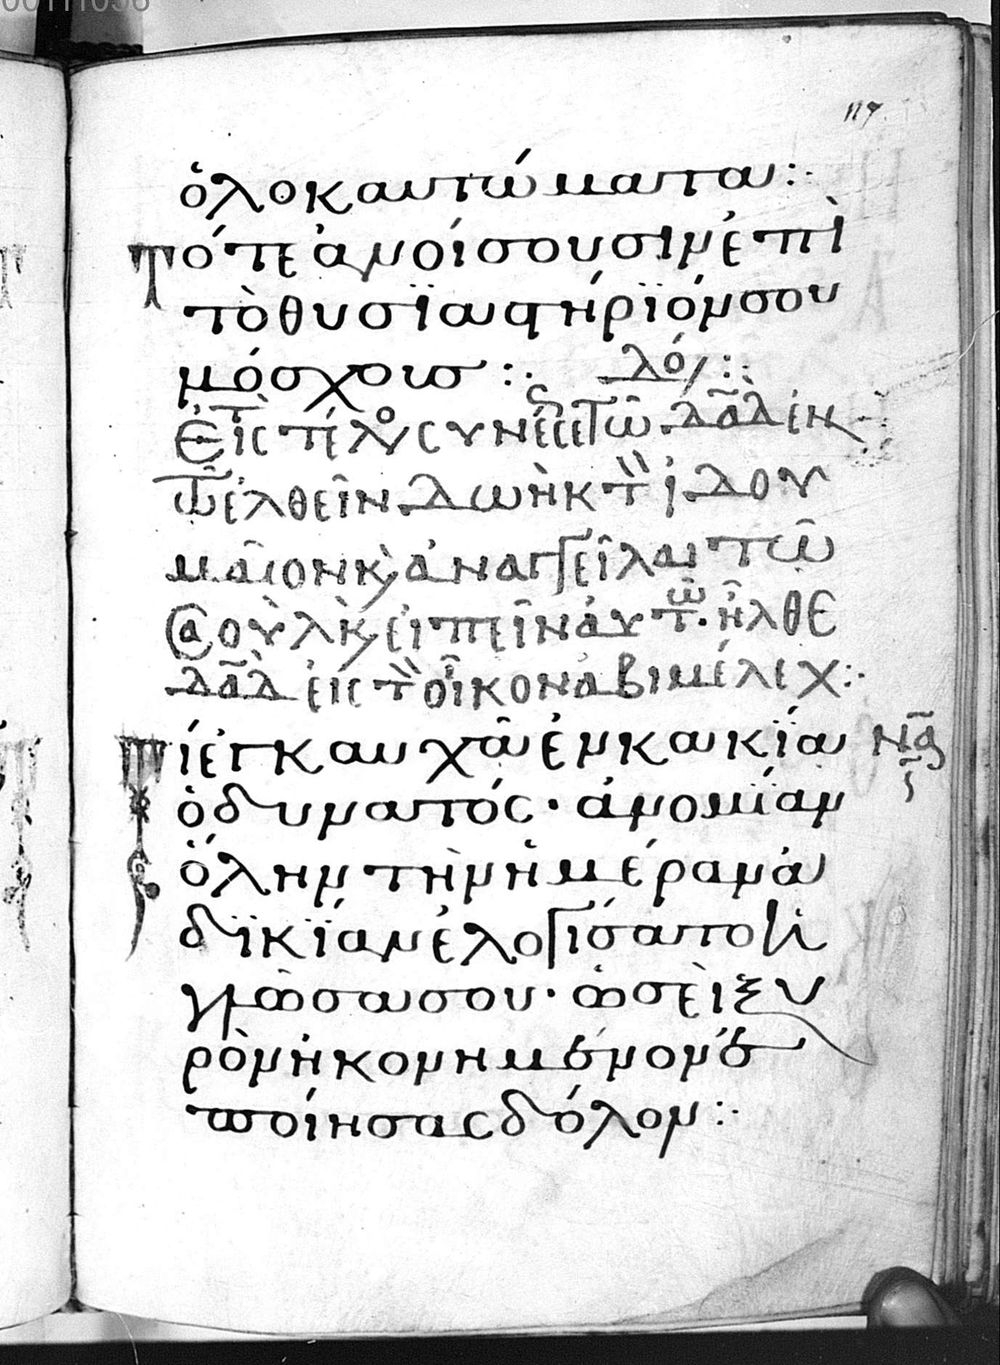 117
ὁλοκαυτώματα:·
Τότε ἀνοίσουσιν ἐπὶ
τὸ θυσϊαστήρϊόν σου
μόσχους:· λό/:·
Εἰς τὸ τέλος συνέσεως τῶ δᾶδ ἐν
τῶ ἐλθεῖν δωὴκ τὸν ἰδου
μαῖον κ̀ ἀναγγεῖλαι τῶ
σαοὺλ κ̀ εἰπεῖν αὐτῶ· ἦλθε
δᾶδ εἰς τὸν οἶκον αβιμέλεχ:·
Τί ἐγκαυχᾶ ἐν κακΐα να
ὁ δυνατός· ἀνομΐαν
ὅλην τὴν ἡμέραν ἀ
δϊκΐαν ἐλογίσατο ἡ
γλῶσσα σου· ὡσεὶ ξυ
ρὸν ἠκονημένον ἐ
ποίησας δόλον:·